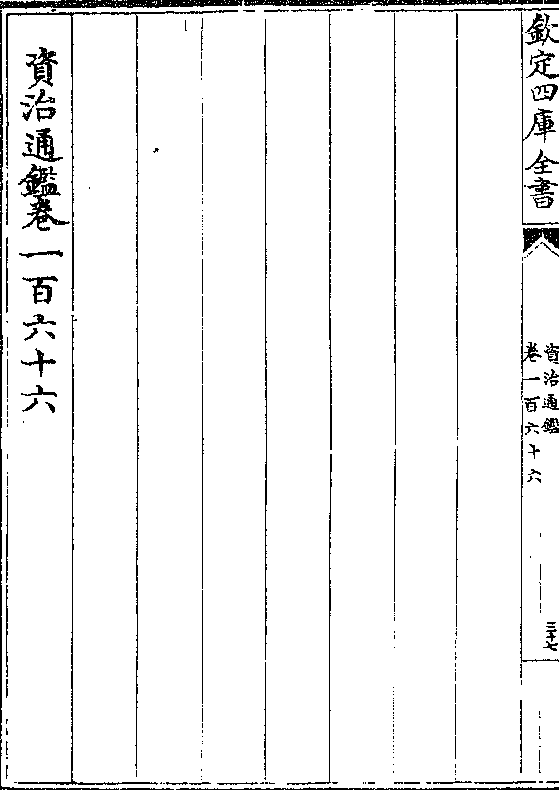 欽定四庫全書
資治通鑑
卷一百六十六
三十七
資治通鑑卷一百六十六